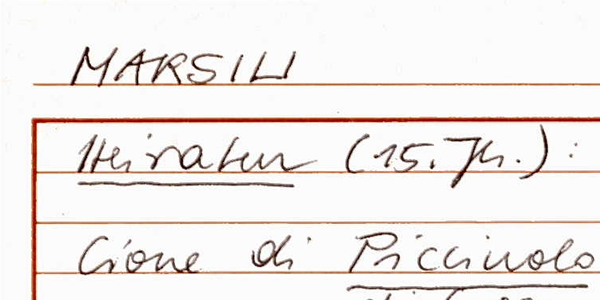 MARSILI
Heiraten (15. Jh.):
Cione di Piccinolo